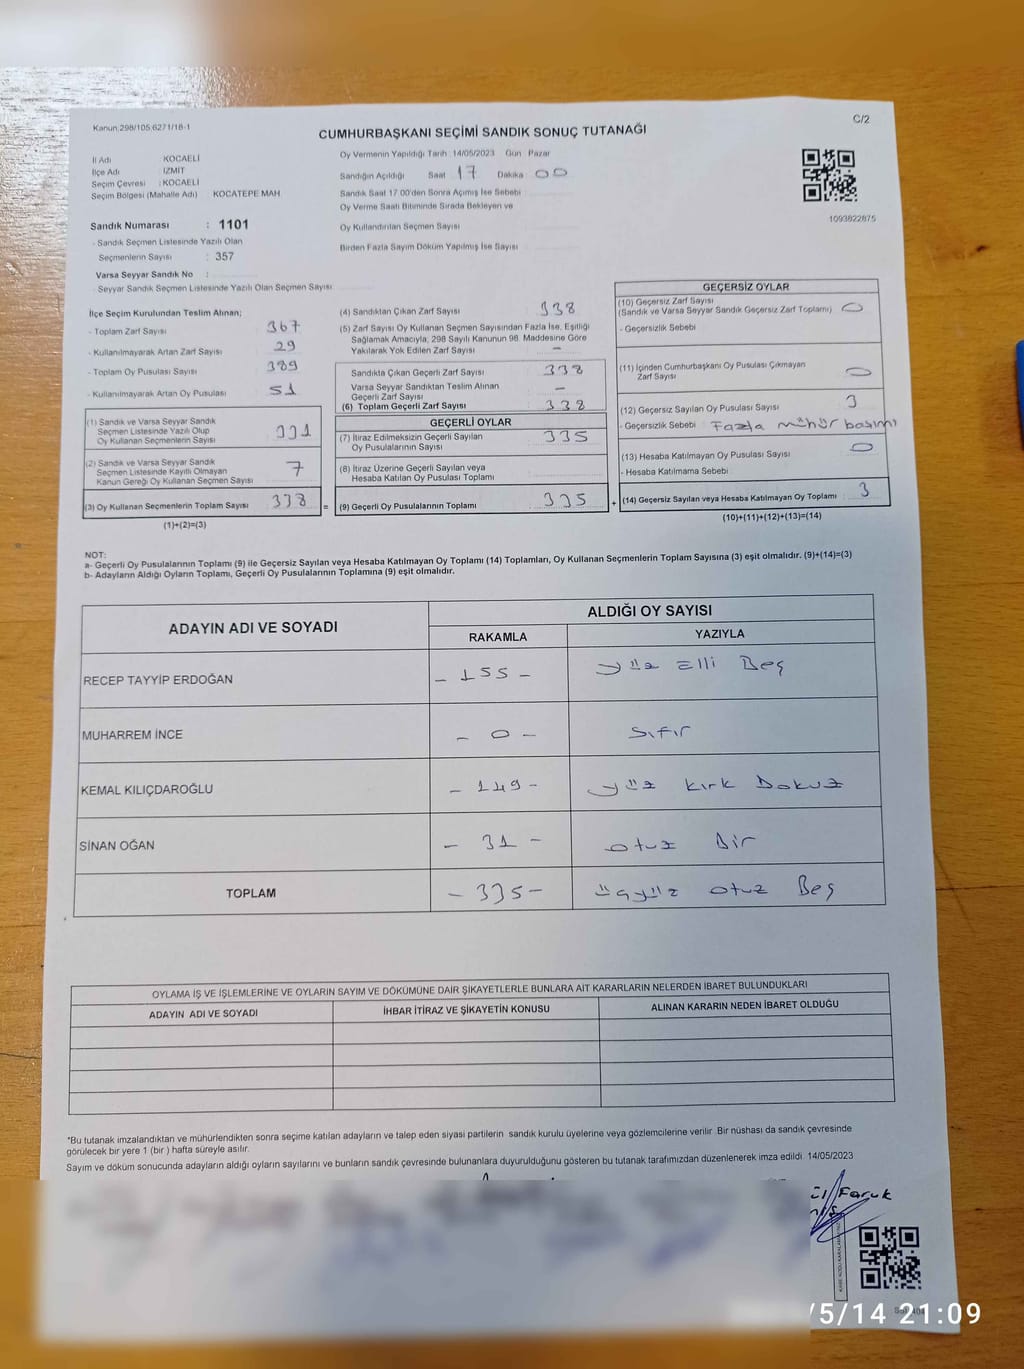 Kanun:298/105,6271/18-1
C/2
CUMHURBAŞKANI SEÇİMİ SANDIK SONUÇ TUTANAĞI
İl Adı KOCAELİ
İlçe Adı İZMİT
Seçim Çevresi : KOCAELİ
Seçim Bölgesi (Mahalle Adı) KOCATEPE MAH
Sandık Numarası : 1101
- Sandık Seçmen Listesinde Yazılı Olan
Seçmenlerin Sayısı : 357
Varsa Seyyar Sandık No :
- Seyyar Sandık Seçmen Listesinde Yazılı Olan Seçmen Sayısı
Oy Vermenin Yapıldığı Tarih : 14/05/2023 Gün Pazar
Sandığın Açıldığı Saat 17 Dakika 00
Sandık Saat 17.00'den Sonra Açılmış İse Sebebi
Oy Verme Saati Bitiminde Sırada Bekleyen ve
Oy Kullandırılan Seçmen Sayısı
Birden Fazla Sayım Döküm Yapılmış İse Sayısı
1093822875
İlçe Seçim Kurulundan Teslim Alınan;
- Toplam Zarf Sayısı 367
- Kullanılmayarak Artan Zarf Sayısı 29
- Toplam Oy Pusulası Sayısı 389
- Kullanılmayarak Artan Oy Pusulası 51
(1) Sandık ve Varsa Seyyar Sandık
Seçmen Listesinde Yazılı Olup
Oy Kullanan Seçmenlerin Sayısı 331
(2) Sandık ve Varsa Seyyar Sandık
Seçmen Listesinde Kayıtlı Olmayan
Kanun Gereği Oy Kullanan Seçmen Sayısı 7
(3) Oy Kullanan Seçmenlerin Toplam Sayısı 338 =
(1)+(2)=(3)
(4) Sandıktan Çıkan Zarf Sayısı 338
(5) Zarf Sayısı Oy Kullanan Seçmen Sayısından Fazla İse, Eşitliği
Sağlamak Amacıyla, 298 Sayılı Kanunun 98. Maddesine Göre
Yakılarak Yok Edilen Zarf Sayısı –
Sandıkta Çıkan Geçerli Zarf Sayısı 338
Varsa Seyyar Sandıktan Teslim Alınan
Geçerli Zarf Sayısı –
(6) Toplam Geçerli Zarf Sayısı 338
GEÇERLİ OYLAR
(7) İtiraz Edilmeksizin Geçerli Sayılan
Oy Pusulalarının Sayısı 335
(8) İtiraz Üzerine Geçerli Sayılan veya
Hesaba Katılan Oy Pusulası Toplamı
(9) Geçerli Oy Pusulalarının Toplamı 335 +
GEÇERSİZ OYLAR
(10) Geçersiz Zarf Sayısı
(Sandık ve Varsa Seyyar Sandık Geçersiz Zarf Toplamı) 0
- Geçersizlik Sebebi
(11) İçinden Cumhurbaşkanı Oy Pusulası Çıkmayan
Zarf Sayısı 0
(12) Geçersiz Sayılan Oy Pusulası Sayısı 3
- Geçersizlik Sebebi Fazla mühür basımı
(13) Hesaba Katılmayan Oy Pusulası Sayısı 0
- Hesaba Katılmama Sebebi
(14) Geçersiz Sayılan veya Hesaba Katılmayan Oy Toplamı 3
(10)+(11)+(12)+(13)=(14)
NOT:
a- Geçerli Oy Pusulalarının Toplamı (9) ile Geçersiz Sayılan veya Hesaba Katılmayan Oy Toplamı (14) Toplamları, Oy Kullanan Seçmenlerin Toplam Sayısına (3) eşit olmalıdır. (9)+(14)=(3)
b- Adayların Aldığı Oyların Toplamı, Geçerli Oy Pusulalarının Toplamına (9) eşit olmalıdır.
ADAYIN ADI VE SOYADI
ALDIĞI OY SAYISI
RAKAMLA YAZIYLA
RECEP TAYYİP ERDOĞAN - 155 - yüz Elli Beş
MUHARREM İNCE - 0 - Sıfır
KEMAL KILIÇDAROĞLU - 149 - yüz kırk Dokuz
SİNAN OĞAN - 31 - otuz Bir
TOPLAM - 335 - üçyüz otuz Beş
OYLAMA İŞ VE İŞLEMLERİNE VE OYLARIN SAYIM VE DÖKÜMÜNE DAİR ŞİKAYETLERLE BUNLARA AİT KARARLARIN NELERDEN İBARET BULUNDUKLARI
ADAYIN ADI VE SOYADI İHBAR İTİRAZ VE ŞİKAYETİN KONUSU ALINAN KARARIN NEDEN İBARET OLDUĞU
*Bu tutanak imzalandıktan ve mühürlendikten sonra seçime katılan adayların ve talep eden siyasi partilerin sandık kurulu üyelerine veya gözlemcilerine verilir. Bir nüshası da sandık çevresinde
görülecek bir yere 1 (bir ) hafta süreyle asılır.
Sayım ve döküm sonucunda adayların aldığı oyların sayılarını ve bunların sandık çevresinde bulunanlara duyurulduğunu gösteren bu tutanak tarafımızdan düzenlenerek imza edildi. 14/05/2023
Faruk
/5/14 21:09